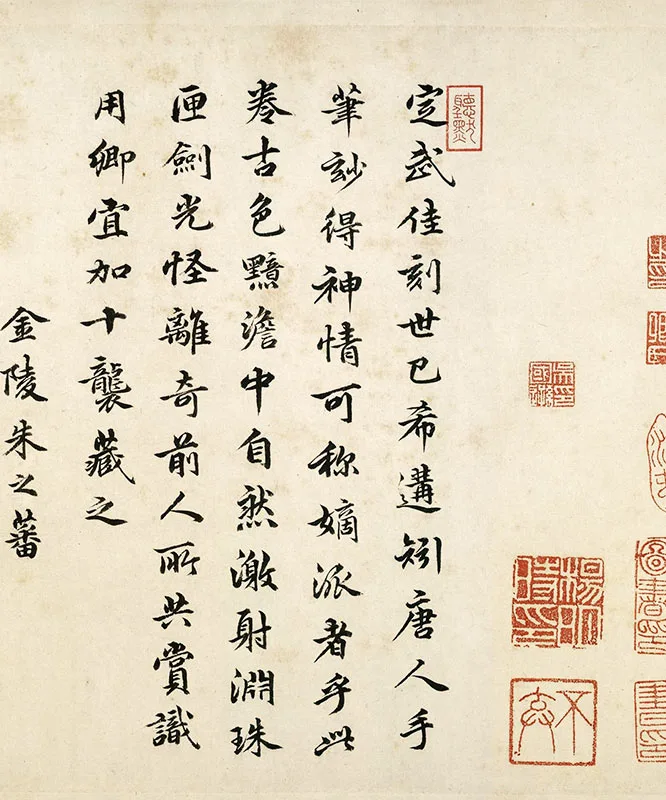 楊明時印
定武佳刻世已希遘矧唐人手
筆玅得神情可称嫡派者乎此
卷古色黯澹中自然激射淵珠
匣劍光怪離奇前人所共賞識
用卿宜加十襲藏之
金陵朱之蕃